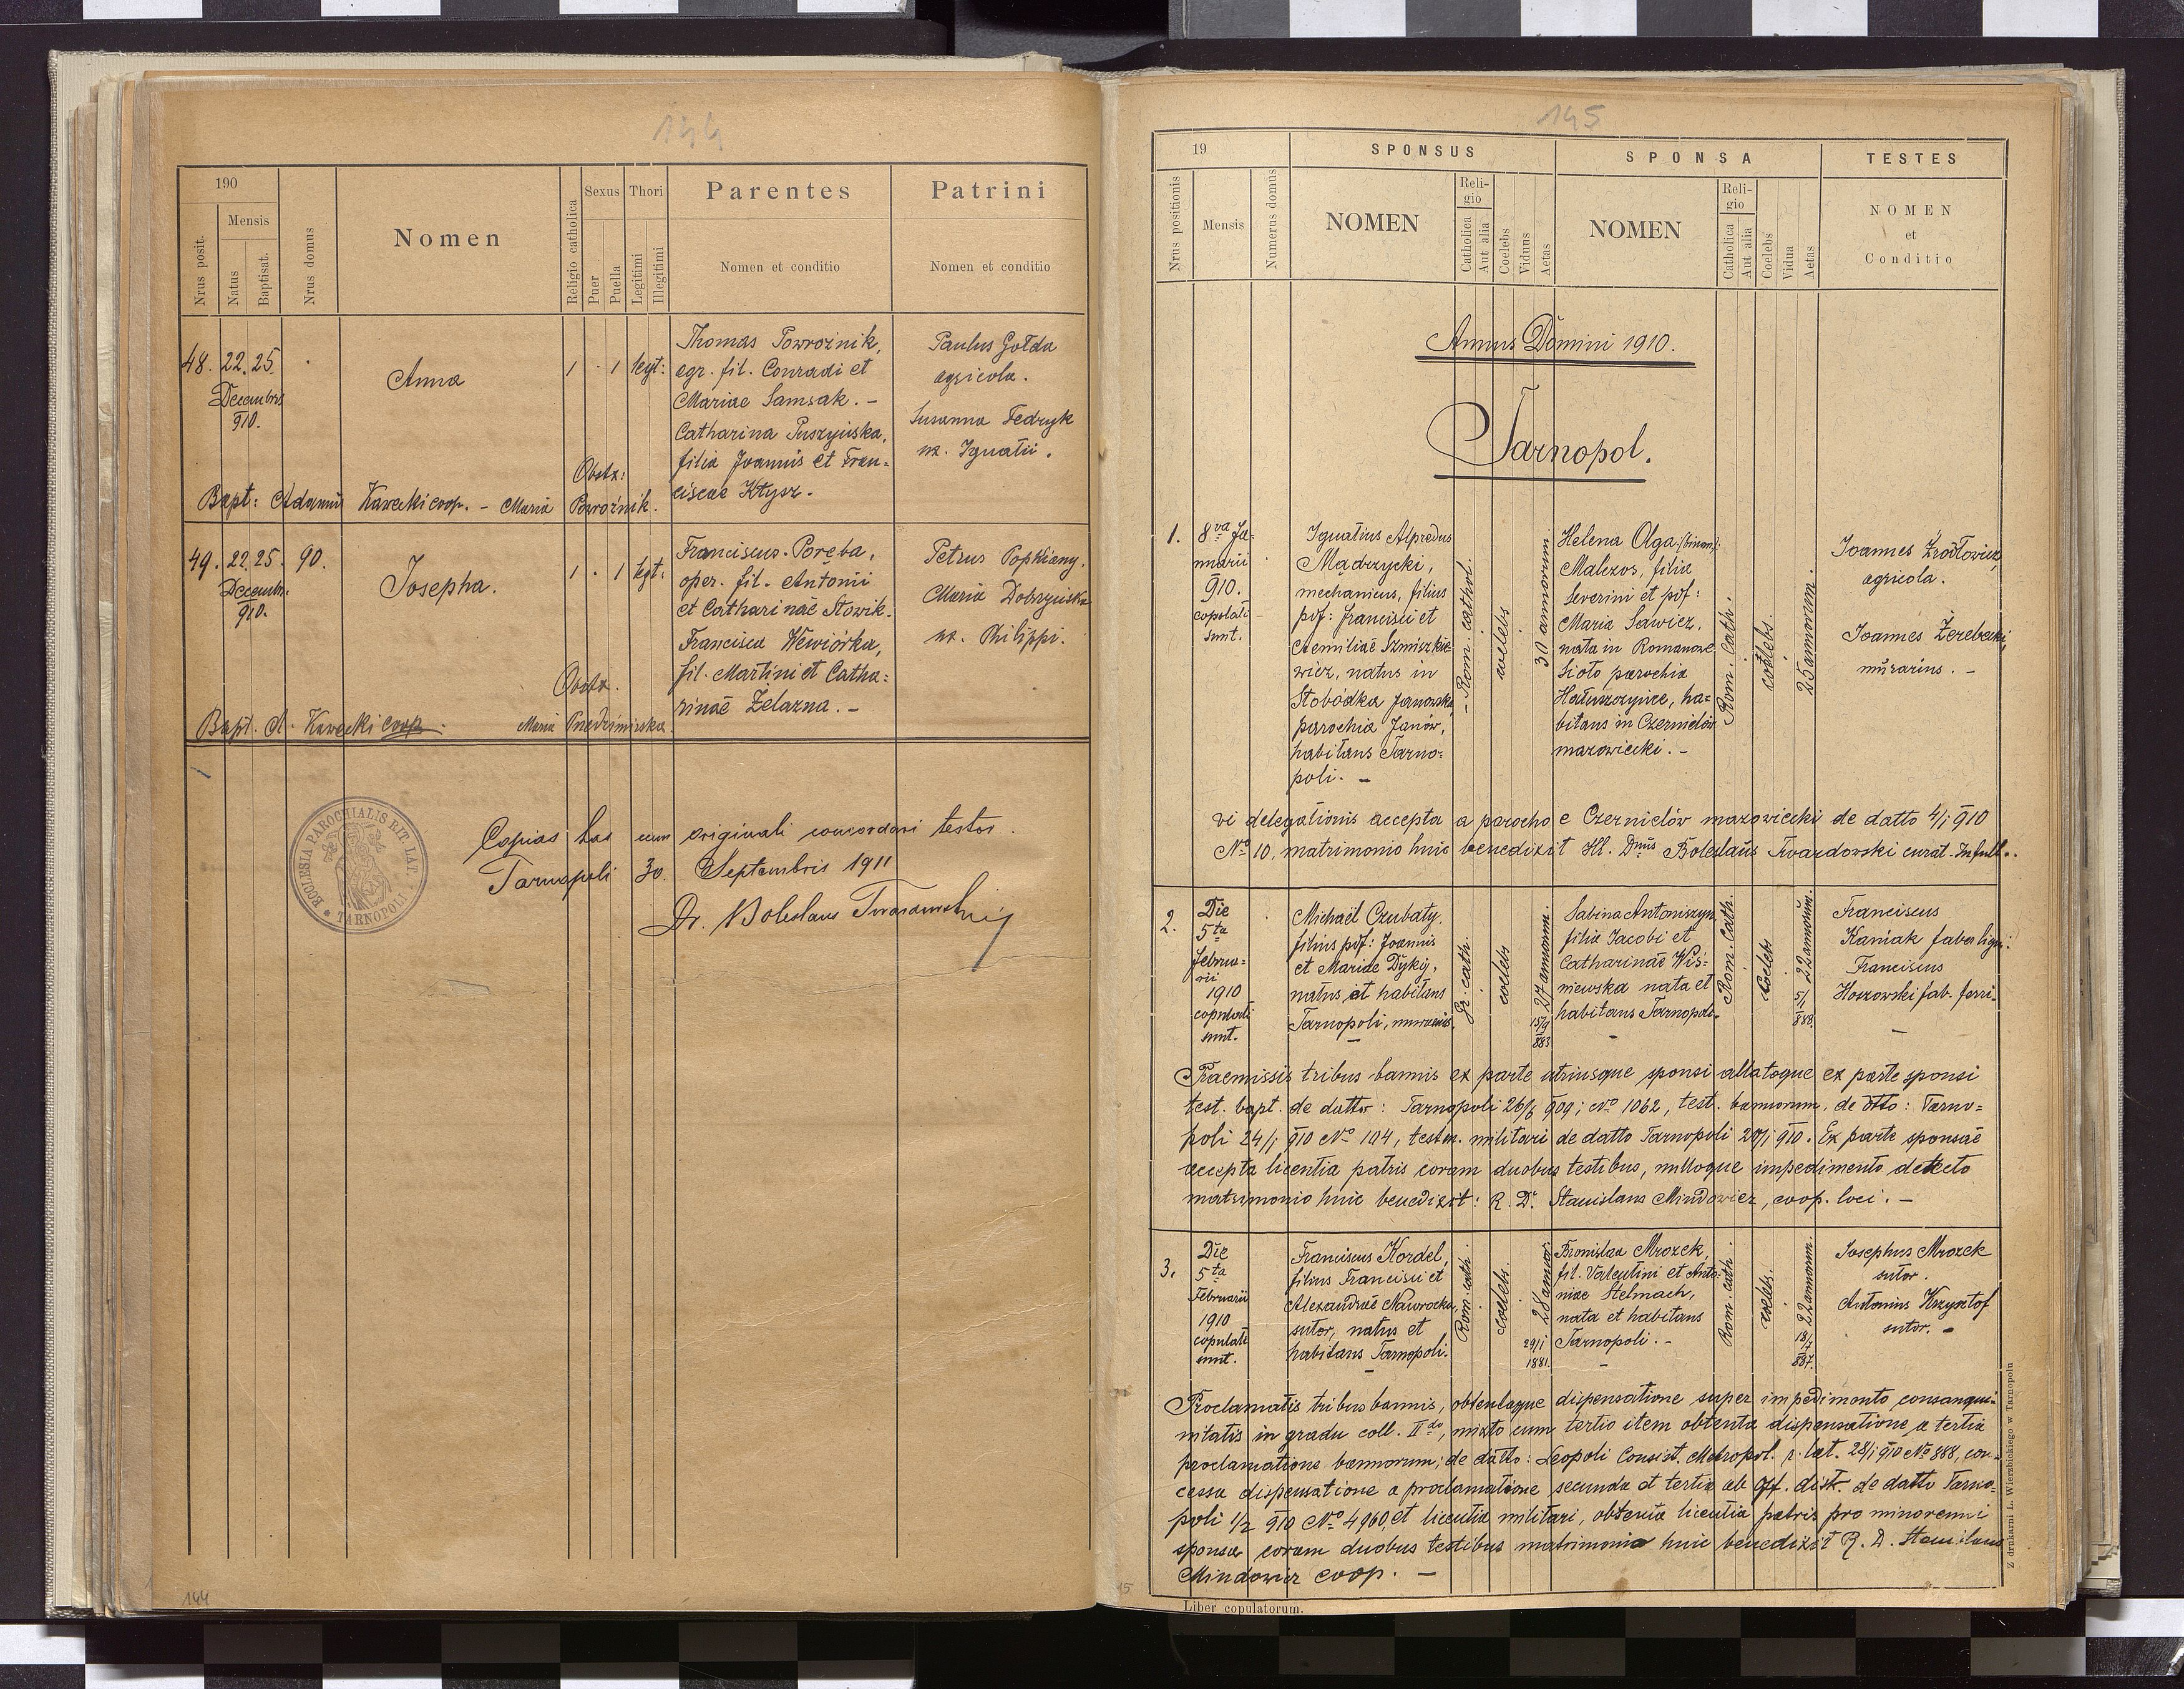 144
190
Nrus posit.
Mensis
Natus
Baptisat.
Nrus domus
Nomen
Religio catholica
Sexus
Puer
Puella
Thori
Legitimi
Illegitimi
Parentes
Nomen et conditio
Patrini
Nomen et conditio
48. 22. 25.
Decembris
910.
Anna
1 · 1 legt:
Thomas Powroźnik,
agr. fil. Conradi et
Mariae Samsak. –
Catharina Puszyńska,
filia Joannis et Fran=
ciscae Kłysz.
Paulus Gołda
agricola.
Susanna Fedryk
ux. Ignatii.
Obstx:
Bapt: Adamus Kawecki coop. – Maria Powroźnik.
49. 22. 25. 90.
Decembr.
910.
Josepha.
1 · 1 legt:
Franciscus Poręba,
oper. fil. Antonii
et Catharinae Słowik.
Francisca Wewiórka,
fil. Martini et Catha=
rinae Żelazna. –
Petrus Popkiany.
Maria Dobrzyńska
ux. Philippi.
Obstx.
Bapt. A. Kawecki coop. Maria
ECCLESIA PAROCHIALIS RIT. LAT. TARNOPOLI
Copias has cum originali concordari testor.
Tarnopoli 30. Septembris 1911
Dr. Boleslaus Twardowski
144
145
19
Nrus positionis
Mensis
Numerus domus
SPONSUS
NOMEN
Reli-
gio
Catholica
Aut alia
Coelebs
Viduus
Aetas
SPONSA
NOMEN
Reli-
gio
Catholica
Aut alia
Coelebs
Vidua
Aetas
TESTES
NOMEN
et
Conditio
Annus Domini 1910.
Tarnopol.
1. 8va Ja=
nuarii
910.
copulati
sunt.
Ignatius Alfredus
Mądrzycki,
mechanicus, filius
pdf: Francisci et
Aemiliae Szmiszkie
wicz, natus in
Słobódka Janowska
parochia Janów,
habitans Tarno=
poli. –
Rom. cathol.
coelebs
30 annorum
Helena Olga (binom):
Malezos, filia
Severini et pdf:
Maria Sawicz,
nata in Romanowe
Sioło parochia
Hałuszczyńce, ha=
bitans in Czernielów
mazowiecki. –
Rom. cath.
coelebs
25 annorum.
Joannes Źródłowicz,
agricola.
Joannes Żerebecki,
murarius. –
vi delegationis accepta a parocho e Czernielów mazowiecki de datto 4/1 910
No 10, matrimonio huic benedixit Ill. Dnus Boleslaus Twardowski curat. Infull.
2. Die
5ta
februa=
rii
1910
copulati
sunt.
Michaël Czubaty
filius pdf: Joannis
et Mariae Dykij,
natus et habitans
Tarnopoli, murarius.
Gr. cath.
coelebs
27 annorum.
15/9
883
Sabina Antoniszyn
filia Jacobi et
Catharinae Wiś=
niewska nata et
habitans Tarnopoli.
Rom. Cath.
Coelebs
22 annorum.
5/1
888.
Franciscus
Kaniak faber lign:
Franciscus
Hoszowski fab. ferri.
Praemissis tribus bannis ex parte utriusque sponsi allatoque ex parte sponsi
test. bapt. de datto: Tarnopoli 26/6 909; No 1062, test. bannorum, de dtto: Tarno=
poli 24/1 910 No 104, testm. militari de datto Tarnopoli 20/1 910. Ex parte sponsae
accepta licentia patris coram duobus testibus, nulloque impedimento detecto
matrimonio huic benedixit: R. Dr. Stanislaus Mindowicz, coop. loci. –
3. Die
5ta
Februarii
1910
copulati
sunt.
Franciscus Kordel,
filius Francisci et
Alexandrae Nawrocka,
sutor, natus et
habitans Tarnopoli.
Rom. cath.
coelebs.
28 annor.
29/1
1881.
Bronislaa Mrozek,
fil. Valentini et Anto=
niae Stelmach,
nata et habitans
Tarnopoli. –
Rom. cath.
coelebs.
22 annorum.
18/7
887.
Josephus Mrozek
sutor.
Antonius Krzysztof
sutor. –
Proclamatis tribus bannis, obtentaque dispensatione super impedimento consangui=
nitatis in gradu coll. IIdo, mixto cum tertio item obtenta dispensatione a tertia
proclamatione bannorum; de datto: Leopoli Consist. Metropol. r. lat. 28/1 910 No 888, con=
cessa dispensatione a proclamatione secunda et tertia ab Off. distr. de datto Tarno=
poli 1/2 910 No 4960, et licentia militari, obtenta licentia patris pro minorenni
sponsa coram duobus testibus matrimonio huic benedixit R. D. Stanislaus
Mindowicz coop. –
Liber copulatorum.
Z drukarni L. Wierzbickiego w Tarnopolu